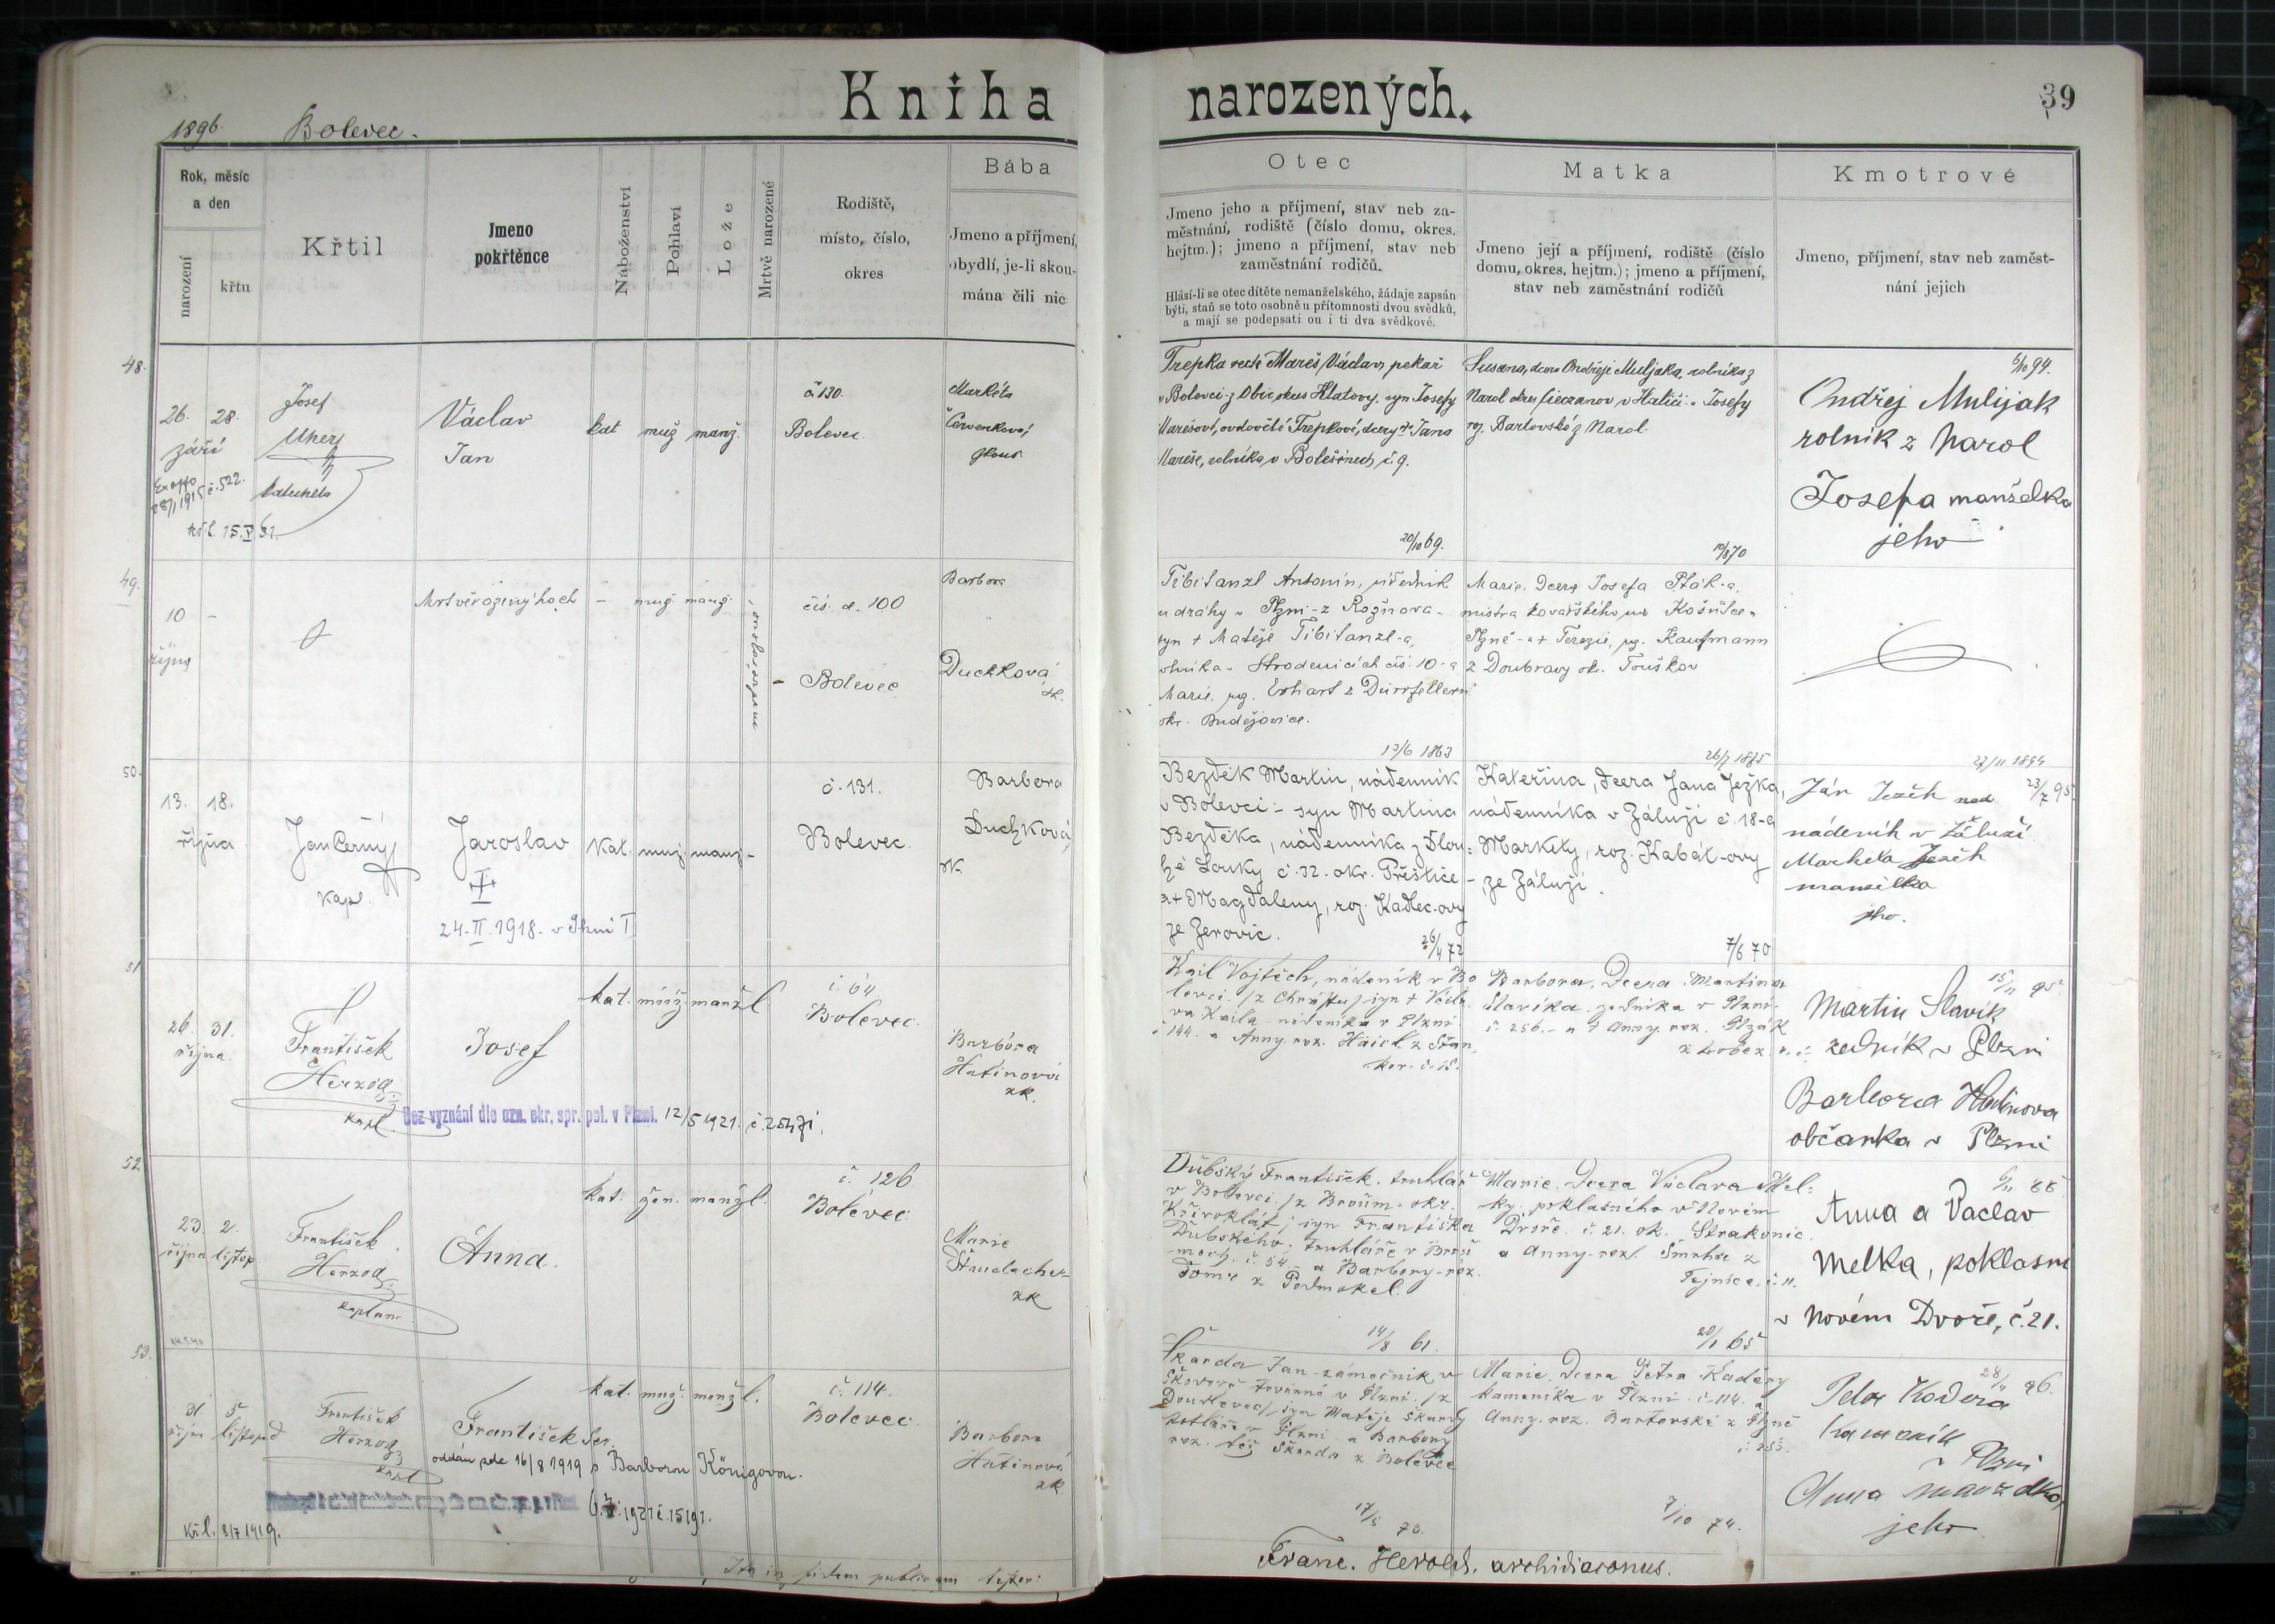 Kniha narozených.
39
1896. Bolevec.
Rok, měsíc
a den
narození
křtu
Křtil
Jmeno
pokřtěnce
Náboženství
Pohlaví
Lože
Mrtvě narozené
Rodiště,
místo, číslo,
okres
Bába
Jmeno a příjmení,
obydlí, je-li skou-
mána čili nic
Otec
Jmeno jeho a příjmení, stav neb za-
městnání, rodiště (číslo domu, okres.
hejtm.); jmeno a příjmení, stav neb
zaměstnání rodičů.
Hlásí-li se otec dítěte nemanželského, žádaje zapsán
býti, staň se toto osobně u přítomnosti dvou svědků,
a mají se podepsati on i ti dva svědkové.
Matka
Jmeno její a příjmení, rodiště (číslo
domu, okres. hejtm.); jmeno a příjmení,
stav neb zaměstnání rodičů
Kmotrové
Jmeno, příjmení, stav neb zaměst-
nání jejich
48.
26. 28.
září
Josef
Václav
Jan
kat muž manž.
č. 130.
Bolevec
Markéta
Červenková
Trepka recte Mareš Václav, pekař
v Bolevci z Obic, okres Klatovy, syn Josefy
Marešové, ovdovělé Trepkové, dcery Jana
Mareše, rolníka v Bolešinech, č. 9.
20/10 69.
Susana, dcera Ondřeje Muljaka, rolníka z
Narol okres Cieczanov v Haliči a Josefy
roz. Bartovské z Narol.
10/8 70
6/10 94.
Ondřej Mulijak
rolník z Narol
Josefa manželka
jeho
49.
10 -
října
Mrtvěrozený hoch
- muž. manž.
čís. d. 100
Bolevec
Barbora
Duchková
zk.
Tibitanzl Antonín, úředník
u dráhy v Plzni - z Rožnova -
syn + Matěje Tibitanzl-a,
rolníka v Strodenicích čís. 10 - a
Marie, roz. Erhart z Dürrfellern
okr. Budějovice.
13/6 1863
Marie, dcera Josefa Pták-a,
mistra kovářského na Košutce v
Plzně - a + Terezie, roz. Kaufmann
z Doubravy ok. Touškov
26/7 1875
27/11 1894
50.
13. 18.
října
Jan Černý
kapl.
Jaroslav
24. II. 1918. v Plzni I
Kat. muž. manž.
č. 131.
Bolevec.
Barbora
Duchková,
zk.
Bezděk Martin, nádenník
v Bolevci - syn Martina
Bezděka, nádenníka z Dlou-
hé Louky č. 32. okr. Přeštice -
a + Magdaleny, roz. Kadlec-ovy
ze Zerovic.
26/4 72
Kateřina, dcera Jana Ježka,
nádenníka v Záluží č. 18 - a
Markéty, roz. Kabát-ovy
ze Záluží.
7/6 70
23/7 95.
Ján Ježek
nádeník v Záluží
Markéta Ježek
manželka
jeho.
51.
26. 31.
října.
František
Herzog
kapl.
Josef
kat. muž. manžl
č. 64
Bolevec.
Barbora
Hatinová
zk.
Bez vyznání dle ozn. okr. spr. pol. v Plzni. 12/5 1921.
Kail Vojtěch, nádeník v Bo
levci syn + Václa
va Kaila nádeníka v Plzni
č 144. a Anny roz.
Barbora, dcera Martina
Slavíka zedníka v Plzni
č. 256. - a + Anny roz.
15/11 95.
Martin Slavík
zedník v Plzni
Barbora Hatinova
občanka v Plzni
52.
23. 2.
října listop.
František
Herzog
kaplan
Anna.
kat. žen. manžl.
č. 126
Bolevec.
Marie
zk
Dubský František, truhlář
v Bolevci / z Broum. okr.
Křivoklát / syn Františka
Dubského, truhláře v Brou
mech, č. 54. a Barbory roz.
z Podmokel.
14/8 61.
Marie, dcera Václava Mel-
ky, poklasného v Novém
Dvoře č. 21. ok. Strakonic.
a Anny roz. Smrha z
Tejnice č. 11.
20/1 65
Anna a Vaclav
Melka, poklasn
v Novém Dvoře, č. 21.
53.
31 5
říjn listopad
František
Herzog
kapl
František Ser.
oddán zde 16/8 1919 s Barborou Königovou.
kat. muž. manžl.
č. 114.
Bolevec.
Barbora
Hatinová
zk
Škarda Jan zámečník v
Škodově továrně v Plzni / z
Doudlevec / syn Matěje Škardy
kotláře v Plzni a Barbory
roz. též Škarda z Bolevce
17/5 73.
Marie, dcera Petra Kadery
kameníka v Plzni č. 114. a
Anny roz. Bartovské z Plzně
7/10 74.
Petr Kodera
kameník
v Plzni
Anna manželka
jeho
Ita in fidem publicam testor:
Franc. Herold. archidiaconus.